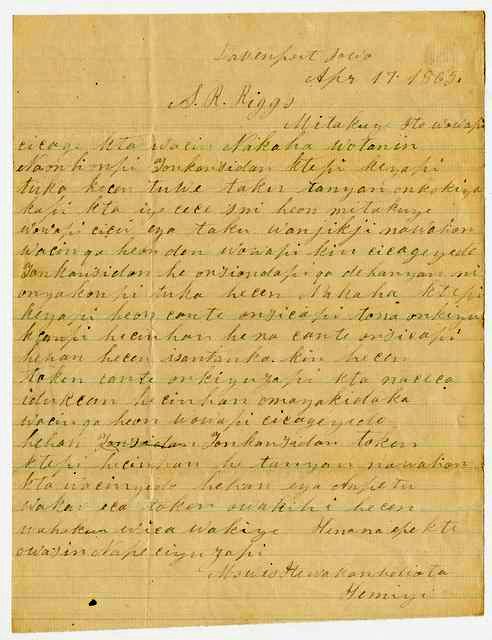 Davenport Iowa
Apr 17 1865.
S. R. Riggs
Mitakuye Ito wowapi
cicage kta wacin Nakaha wotanin
Naonhonpi Tonkansidan ktepi keyapi
tuka hecen tuwe taku tanyan onkokiya
kapi kta iye cece sni heon mitakuye
wowapi cicu eya taku wanjikji nawahon
wacin ga heon don wowapi kin cicageyedo
Tonkansidan he onsiondapi ga dehanyan ni
onyakonpi tuka hecen Nakaha ktepi
keyapi heon cante onsicapi tona
hecinhan hena cante onsicapi
hehan hecen isantanka kin hecen
token cante onkiyuzapi kta naceca
idukcan hecinhan omayakidaka
wacin ga heon wowapi cicageyedo
hehan Tonkansidan token
ktepi hecinhan he tanyan nawahon
kta wacinyedo hehan eya Anpetu
wakan eca token owakihi hecen
wahokon wica wakiye Henana epe kte
owasin Nape ciyuzapi
Mowis Hewakanhdiota
Hemiye